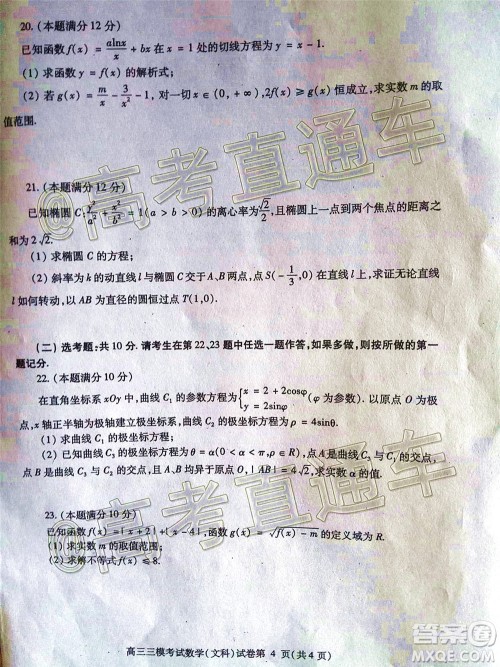 20.(本题满分 12 分)
已知函数 f(x) = alnx/x + bx 在 x = 1 处的切线方程为 y = x - 1.
(1) 求函数 y = f(x) 的解析式;
(2) 若 g(x) = m/x - 3/x² - 1, 对一切 x ∈ (0, +∞), 2f(x) ≥ g(x) 恒成立, 求实数 m 的取
值范围.
21.(本题满分 12 分)
已知椭圆 C: y²/a² + x²/b² = 1(a > b > 0) 的离心率为 √2/2, 且椭圆上一点到两个焦点的距离之
和为 2√2.
(1) 求椭圆 C 的方程;
(2) 斜率为 k 的动直线 l 与椭圆 C 交于 A、B 两点, 点 S(-1/3, 0) 在直线 l 上, 求证无论直线
l 如何转动, 以 AB 为直径的圆恒过点 T(1,0).
(二) 选考题: 共 10 分. 请考生在第 22、23 题中任选一题作答, 如果多做, 则按所做的第一
题记分.
22.(本题满分 10 分)
在直角坐标系 xOy 中, 曲线 C₁ 的参数方程为 {x = 2 + 2cosφ y = 2sinφ (φ 为参数). 以原点 O 为极
点, x 轴正半轴为极轴建立极坐标系, 曲线 C₂ 的极坐标方程为 ρ = 4sinθ.
(1) 求曲线 C₁ 的极坐标方程;
(2) 已知曲线 C₃ 的极坐标方程为 θ = α(0 < α < π, ρ ∈ R), 点 A 是曲线 C₃ 与 C₁ 的交点,
点 B 是曲线 C₃ 与 C₂ 的交点, 且 A、B 均异于原点 O, |AB| = 4√2, 求实数 α 的值.
23.(本题满分 10 分)
已知函数 f(x) = |x + 2| + |x - 4|, 函数 g(x) = √f(x) - m 的定义域为 R.
(1) 求实数 m 的取值范围;
(2) 求解不等式 f(x) ≤ 8.
高三三模考试数学(文科)试卷第 4 页(共 4 页)
@高考直通车
@高考直通车
@高考直通车
作业帮
MXQE.COM